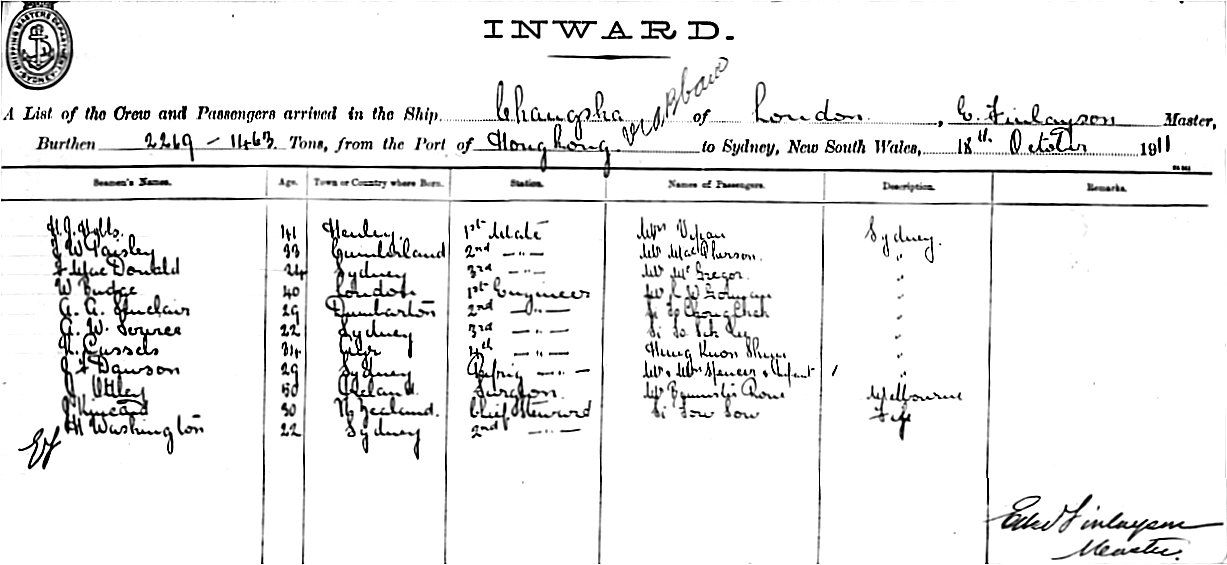 SHIPPING MASTERS DEPARTMENT SYDNEY
INWARD.
A List of the Crew and Passengers arrived in the Ship Changsha of London, E. Finlayson Master,
Burthen 2269 – 1463 Tons, from the Port of Hongkong to Sydney, New South Wales, 18th October 1911
Seamen's Names. Age. Town or Country where Born. Station. Names of Passengers. Description. Remarks.
41 Henley 1st Mate Sydney.
J W Paisley 33 Cumberland 2nd –„– Mr MacPherson „
J MacDonald 24 Sydney 3rd –„– Mr McGregor „
W Budge 40 London 1st Engineer „
A. A. Sinclair 29 Dumbarton 2nd –„– „
A. W. 22 Sydney 3rd –„– „
Cassels 34 4th –„– „
J F Dawson 29 Sydney Refrig –„– Mr & Mrs Spencer & Infant „
J Utley 50 Surgeon Melbourne
J Kincaid 30 N Zealand. Chief Steward Fiji
H Washington 22 Sydney 2nd –„–
EF
Edw Finlayson
Master.